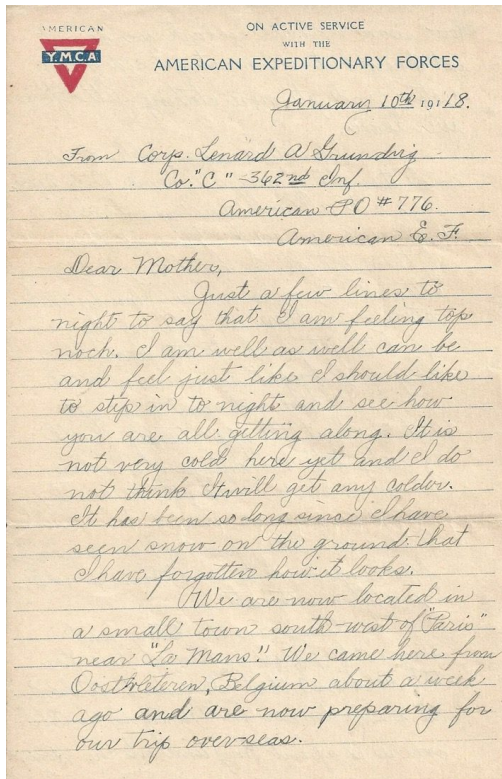 AMERICAN
Y.M.C.A
ON ACTIVE SERVICE
WITH THE
AMERICAN EXPEDITIONARY FORCES
January 10th 19118.
From Corp. Lenard A Grundvig
Co. "C" - 362nd Inf.
American PO # 776.
American E. F.
Dear Mother,
Just a few lines to
night to say that I am feeling top
noch. I am well as well can be
and feel just like I should like
to step in to night and see how
you are all getting along. It is
not very cold here yet and I do
not think It will get any colder.
It has been so long since I have
seen snow on the ground that
I have forgotten how it looks.
We are now located in
a small town south-west of "Paris"
near "La Mans". We came here from
Oostvleteren, Belgium about a week
ago and are now preparing for
our trip over-seas.